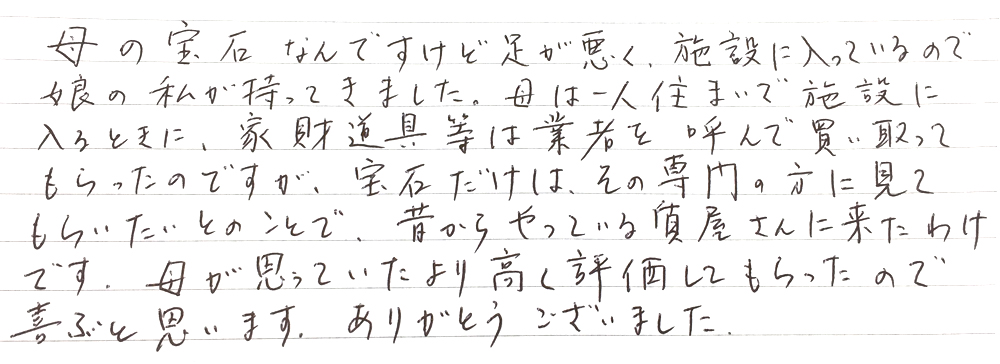 母の宝石なんですけど足が悪く、施設に入っているので
娘の私が持ってきました。母は一人住まいで施設に
入るときに、家財道具等は業者を呼んで買い取って
もらったのですが、宝石だけは、その専門の方に見て
もらいたいとのことで、昔からやっている質屋さんに来たわけ
です。母が思っていたより高く評価してもらったので
喜ぶと思います。ありがとうございました。